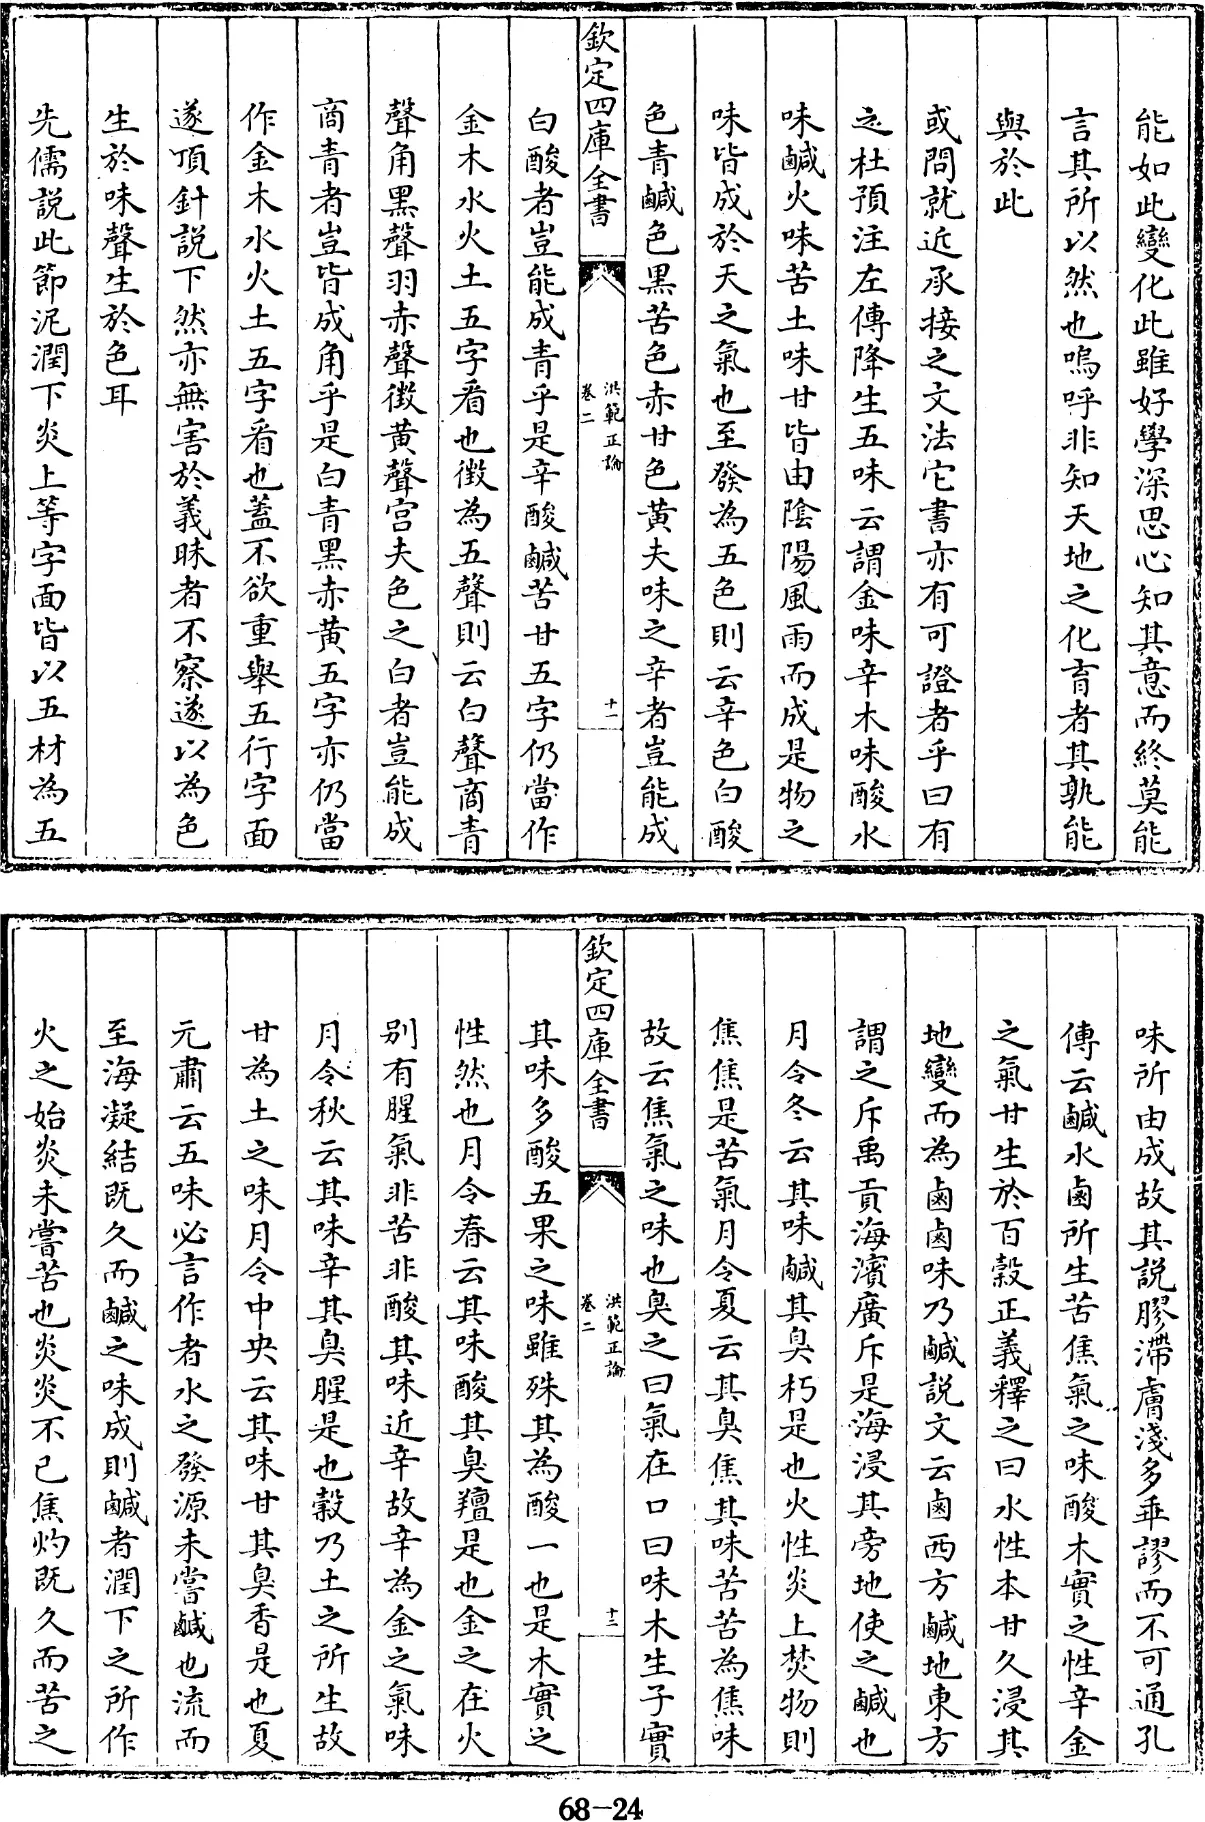 能如此變化此雖好學深思心知其意而終莫能
言其所以然也嗚呼非知天地之化育者其孰能
與於此
或問就近承接之文法它書亦有可證者乎曰有
之杜預注左傳降生五味云謂金味辛木味酸水
味鹹火味苦土味甘皆由陰陽風雨而成是物之
味皆成於天之氣也至發為五色則云辛色白酸
色青鹹色黑苦色赤甘色黄夫味之辛者豈能成
欽定四庫全書
洪範正論
卷二
十一
白酸者豈能成青乎是辛酸鹹苦甘五字仍當作
金木水火土五字看也徴為五聲則云白聲商青
聲角黑聲羽赤聲徴黄聲宫夫色之白者豈能成
商青者豈皆成角乎是白青黑赤黄五字亦仍當
作金木水火土五字看也蓋不欲重舉五行字面
遂頂針説下然亦無害於義昧者不察遂以為色
生於味聲生於色耳
先儒説此節泥潤下炎上等字面皆以五材為五
味所由成故其説膠滯膚淺多乖謬而不可通孔
傳云鹹水鹵所生苦焦氣之味酸木實之性辛金
之氣甘生於百穀正義釋之曰水性本甘久浸其
地變而為鹵鹵味乃鹹説文云鹵西方鹹地東方
謂之斥禹貢海濱廣斥是海浸其旁地使之鹹也
月令冬云其味鹹其臭朽是也火性炎上焚物則
焦焦是苦氣月令夏云其臭焦其味苦苦為焦味
故云焦氣之味也臭之曰氣在口曰味木生子實
欽定四庫全書
洪範正論
卷二
十二
其味多酸五果之味雖殊其為酸一也是木實之
性然也月令春云其味酸其臭羶是也金之在火
别有腥氣非苦非酸其味近辛故辛為金之氣味
月令秋云其味辛其臭腥是也穀乃土之所生故
甘為土之味月令中央云其味甘其臭香是也夏
元肅云五味必言作者水之發源未嘗鹹也流而
至海凝結既久而鹹之味成則鹹者潤下之所作
火之始炎未嘗苦也炎炎不已焦灼既久而苦之
68-24